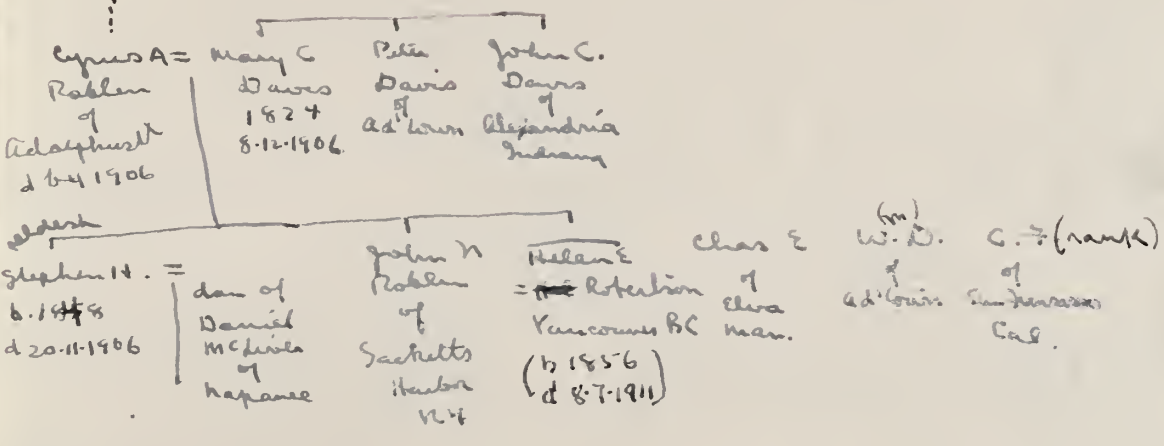 Cyrus A =
Roblen
of
Adolphust
d by 1906
Mary C
Davis
1824
8.12.1906.
Peter
Davis
of
Ad'town
John C.
Davis
of
Alejandria
Indiana
eldest
Stephen H. =
b. 1848
d 20.11.1906
dau of
Daniel
of
Napanee
John N
Roblen
of
Sacketts
Harbor
NY
Helen E
= Robertson
Vancouver BC
(b 1856
d 8.7.1911)
Chas E
of
Elva
Man.
(m)
W. D.
of
Ad'town
G. F (rank)
of
San Francisco
Cal.